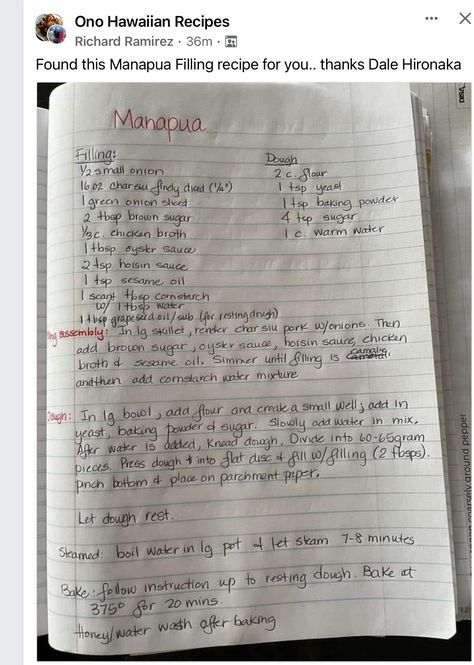 Ono Hawaiian Recipes
Richard Ramirez · 36m ·
Found this Manapua Filling recipe for you.. thanks Dale Hironaka
Manapua
Filling:
1/2 small onion
16 oz char siu findy diced (1/4")
1 green onion sliced
2 tbsp brown sugar
1/3 c. chicken broth
1 tbsp oyster sauce
2 tsp hoisin sauce
1 tsp sesame oil
1 scant tbsp cornstarch
w/ 1 tbsp water
1 tbsp grapeseed oil/sub (for resting dough)
Dough
2 c. flour
1 tsp yeast
1 tsp baking powder
4 tsp sugar
1 c. warm water
assembly: In lg skillet, render char siu pork w/onions. Then
add brown sugar, oyster sauce, hoisin sauce, chicken
broth & sesame oil. Simmer until filling is
and then add cornstarch water mixture
Dough: In lg bowl, add flour and create a small well; add in
yeast, baking powder & sugar. Slowly add water in mix.
After water is added, knead dough. Divide into 60-65gram
pieces. Press dough into flat disc & fill w/ filling (2 tbsps).
pinch bottom & place on parchment paper.
Let dough rest.
Steamed: boil water in lg pot & let steam 7-8 minutes
Bake: follow instruction up to resting dough. Bake at
375° for 20 mins.
Honey/water wash after baking
coarsely ground pepper